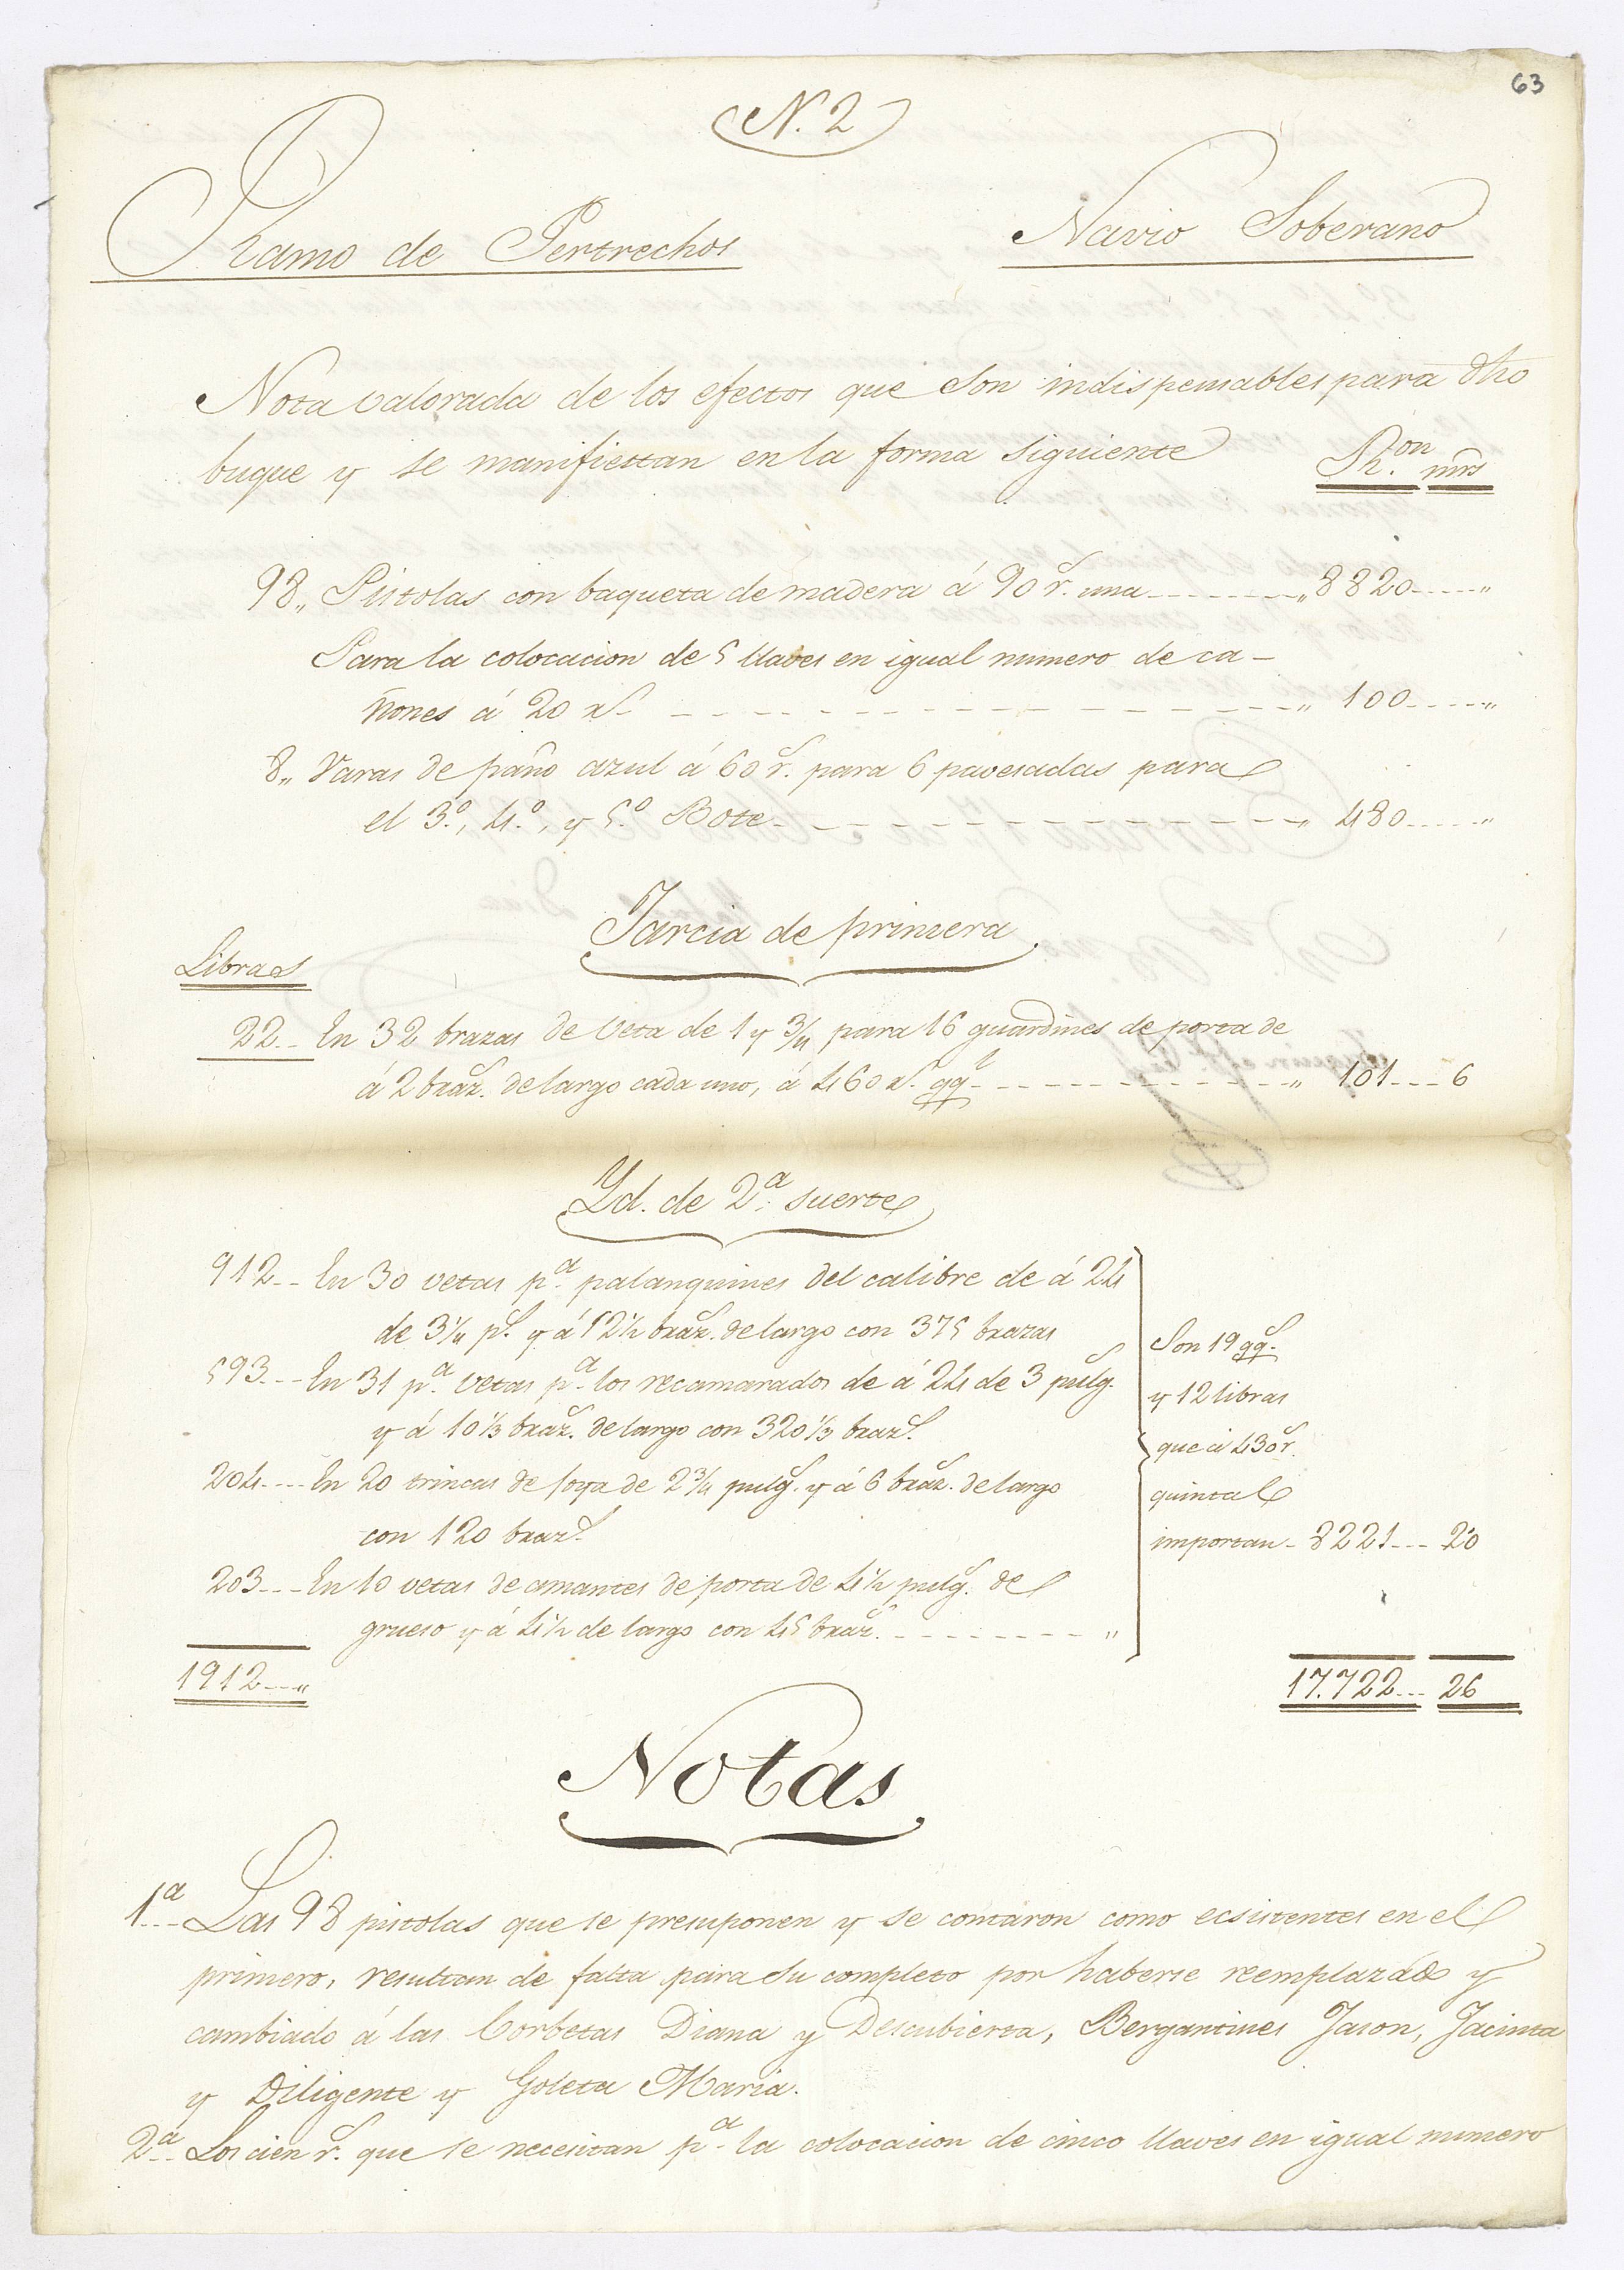 63
N. 2
Ramo de Pertrechos
Navio Soberano
Nota valorada de los efectos que son indispensables para dho
buque y se manifiestan en la forma siguiente
R.on mrs
98,, Pistolas con baqueta de madera á 90 rs. una --------,, 8820 ----- ,,
Para la colocacion de 5 llaves en igual numero de ca-
ñones á 20 rs. -- - - - - - - - - - - - - - - - - ,, 100 ----- ,,
8,, Varas de paño azul á 60 rs. para 6 pavesadas para
el 3.º, 4.º, y 5.º Bote - - - - - - - - - - - - - - - - ,, 480 ----- ,,
Jarcia de primera
Libras
22 -- En 32 brazas de veta de 1 y 3/4 para 16 guardines de porta de
á 2 brazs. de largo cada uno, á 460 rs. qql - - - - - - - - - - - ,, 101 --- 6
Yd. de 2.ª suerte
912 -- En 30 vetas p.ª palanquines del calibre de á 24
de 3 1/4 ps. y á 12 1/2 brazs. de largo con 375 brazas
593 --- En 31 p.ª vetas p.ª los recamarados de á 24 de 3 pulgs.
y á 10 1/3 brazs. de largo con 320 1/3 brazs.
204 ---- En 20 trincas de foya de 2 3/4 pulgs. y á 6 brazs. de largo
con 120 brazs.
203 --- En 10 vetas de amantes de porta de 4 1/2 pulgs. de
grueso y á 4 1/2 de largo con 45 brazs. - - - - - - - - ,,
Son 19 qqs.
y 12 libras
que á 430 rs.
quintal
importan - 8221 --- 20
1912 --- ,,
17.722 --- 26
Notas
1.ª -- Las 98 pistolas que se presuponen y se contaron como ecsistentes en el
primero, resultan de falta para su completo por haberse reemplazado y
cambiado á las Corbetas Diana y Descubierta, Bergantines Jason, Jacinta
y Diligente y Goleta Maria.
2.ª -- Los cien rs. que se necesitan p.ª la colocacion de cinco llaves en igual numero